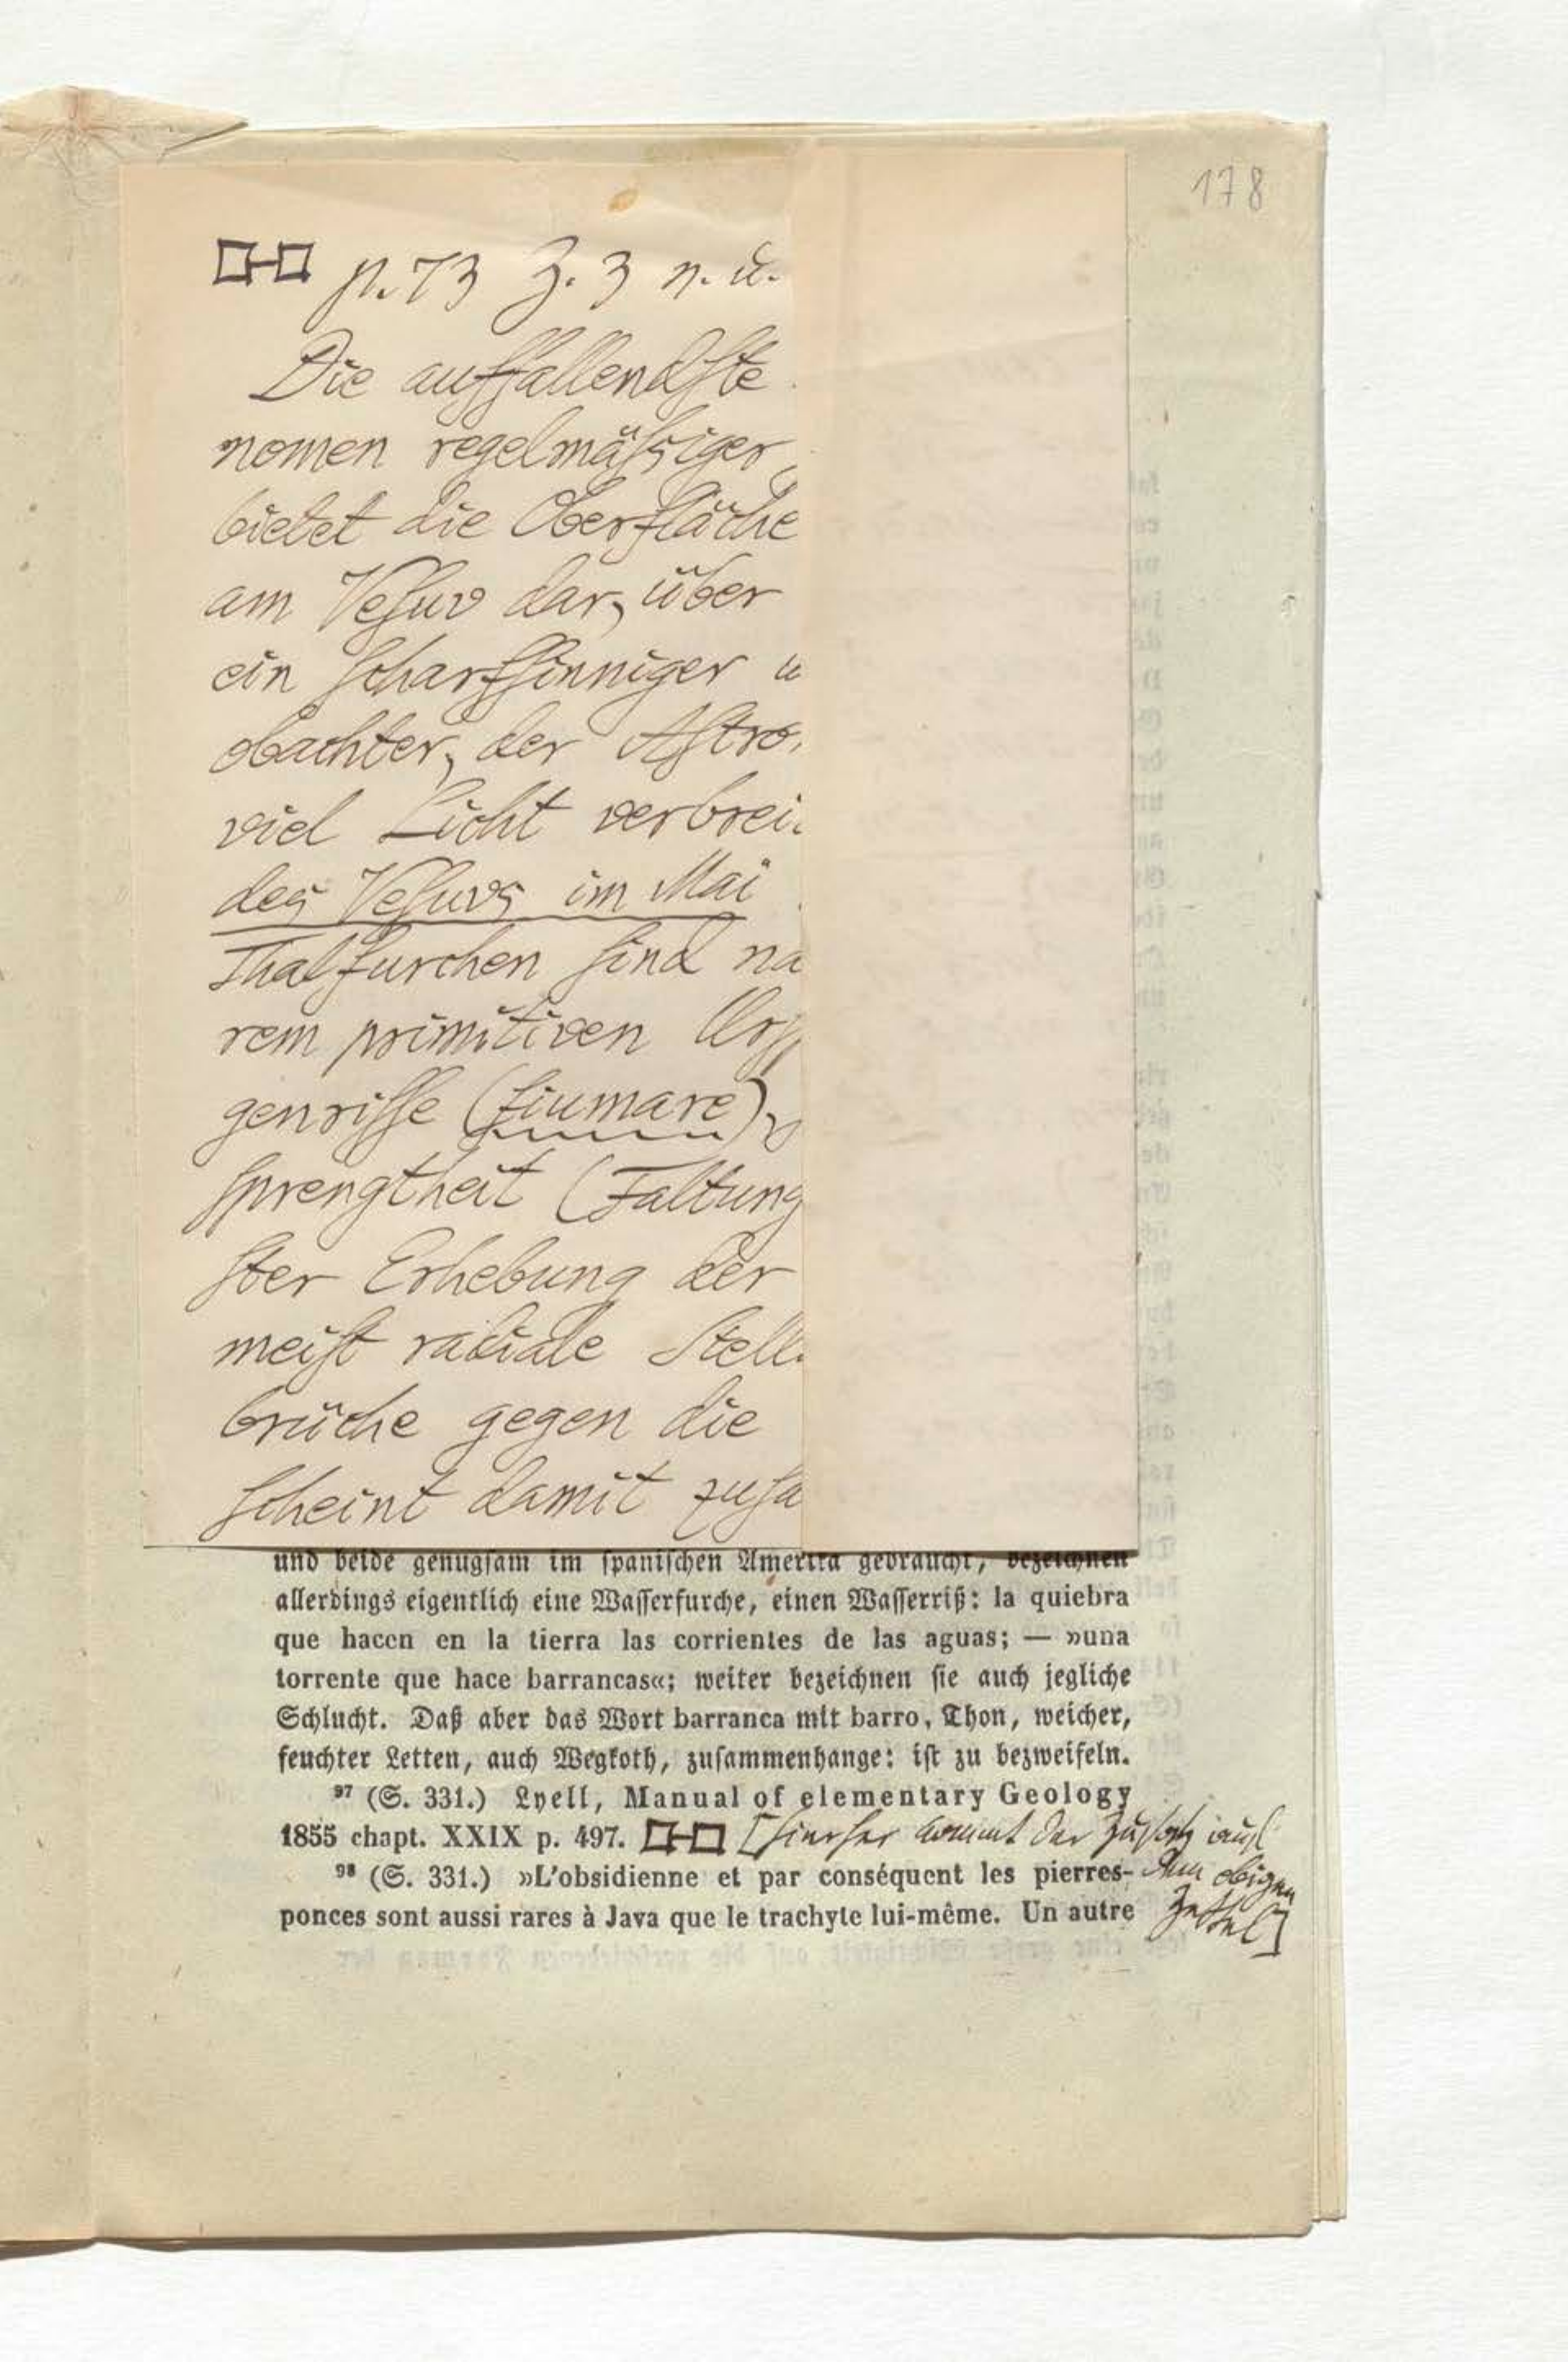 178
p. 73 Z. 3 v. u.
Die auffallendste
nomen regelmäßiger
bietet die Oberfläche
am Vesuv dar, über
ein scharfsinniger u
obachter, der Astro
viel Licht verbrei
des Vesuvs im Mai
Thalfurchen sind na
rem primitiven Ursp
genrisse (fiumare),
sprengtheit (Faltung
ster Erhebung der
meist radiale Stell
brüche gegen die
scheint damit zusa
und beide genugsam im spanischen Amerika gebraucht, bezeichnen
allerdings eigentlich eine Wasserfurche, einen Wasserriß: la quiebra
que hacen en la tierra las corrientes de las aguas; — »una
torrente que hace barrancas«; weiter bezeichnen sie auch jegliche
Schlucht. Daß aber das Wort barranca mit barro, Thon, weicher,
feuchter Letten, auch Wegkoth, zusammenhange: ist zu bezweifeln.
97 (S. 331.) Lyell, Manual of elementary Geology
1855 chapt. XXIX p. 497. [hierher kommt der Zusatz auf
98 (S. 331.) »L'obsidienne et par conséquent les pierres- dem obigen
ponces sont aussi rares à Java que le trachyte lui-même. Un autre Zettel]